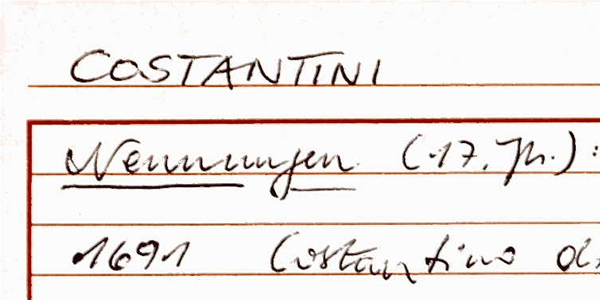 COSTANTINI
Nennungen (17. Jh.):
1691 Costantino